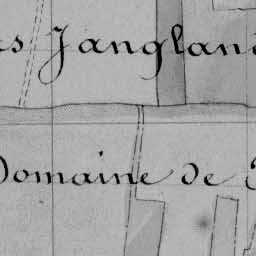 es Jangland
Domaine de